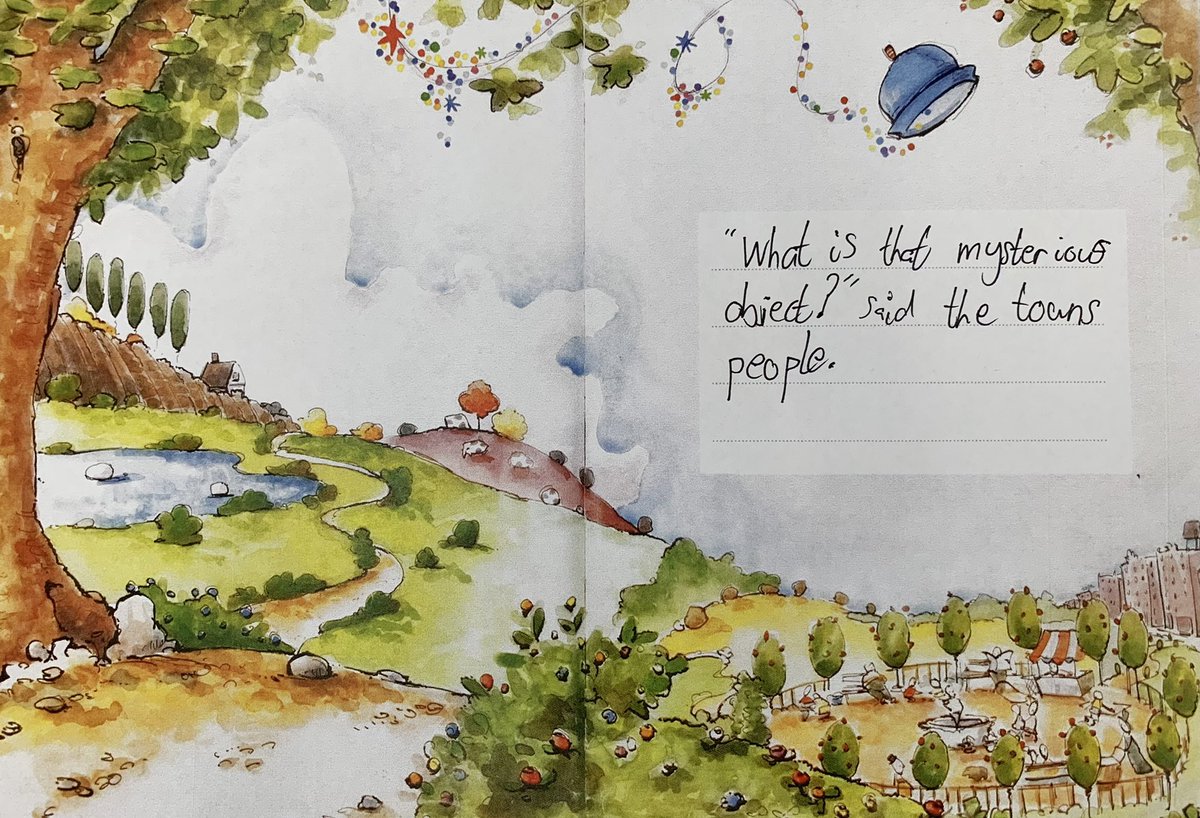 "What is that mysterious
object?" said the towns
people.